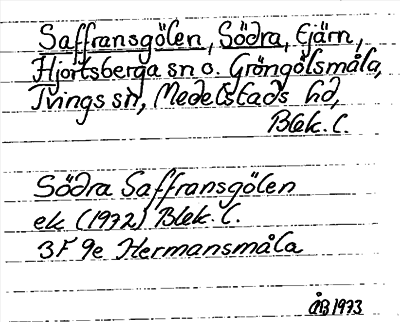 Saffransgölen, Södra, tjärn,
Hjortsberga sn o. Gröngölsmåla,
Tvings sn, Medelstads hd,
Blek. l.
Södra Saffransgölen
ek (1972) Blek. l.
3F 9e Hermansmåla
ÅB 1973